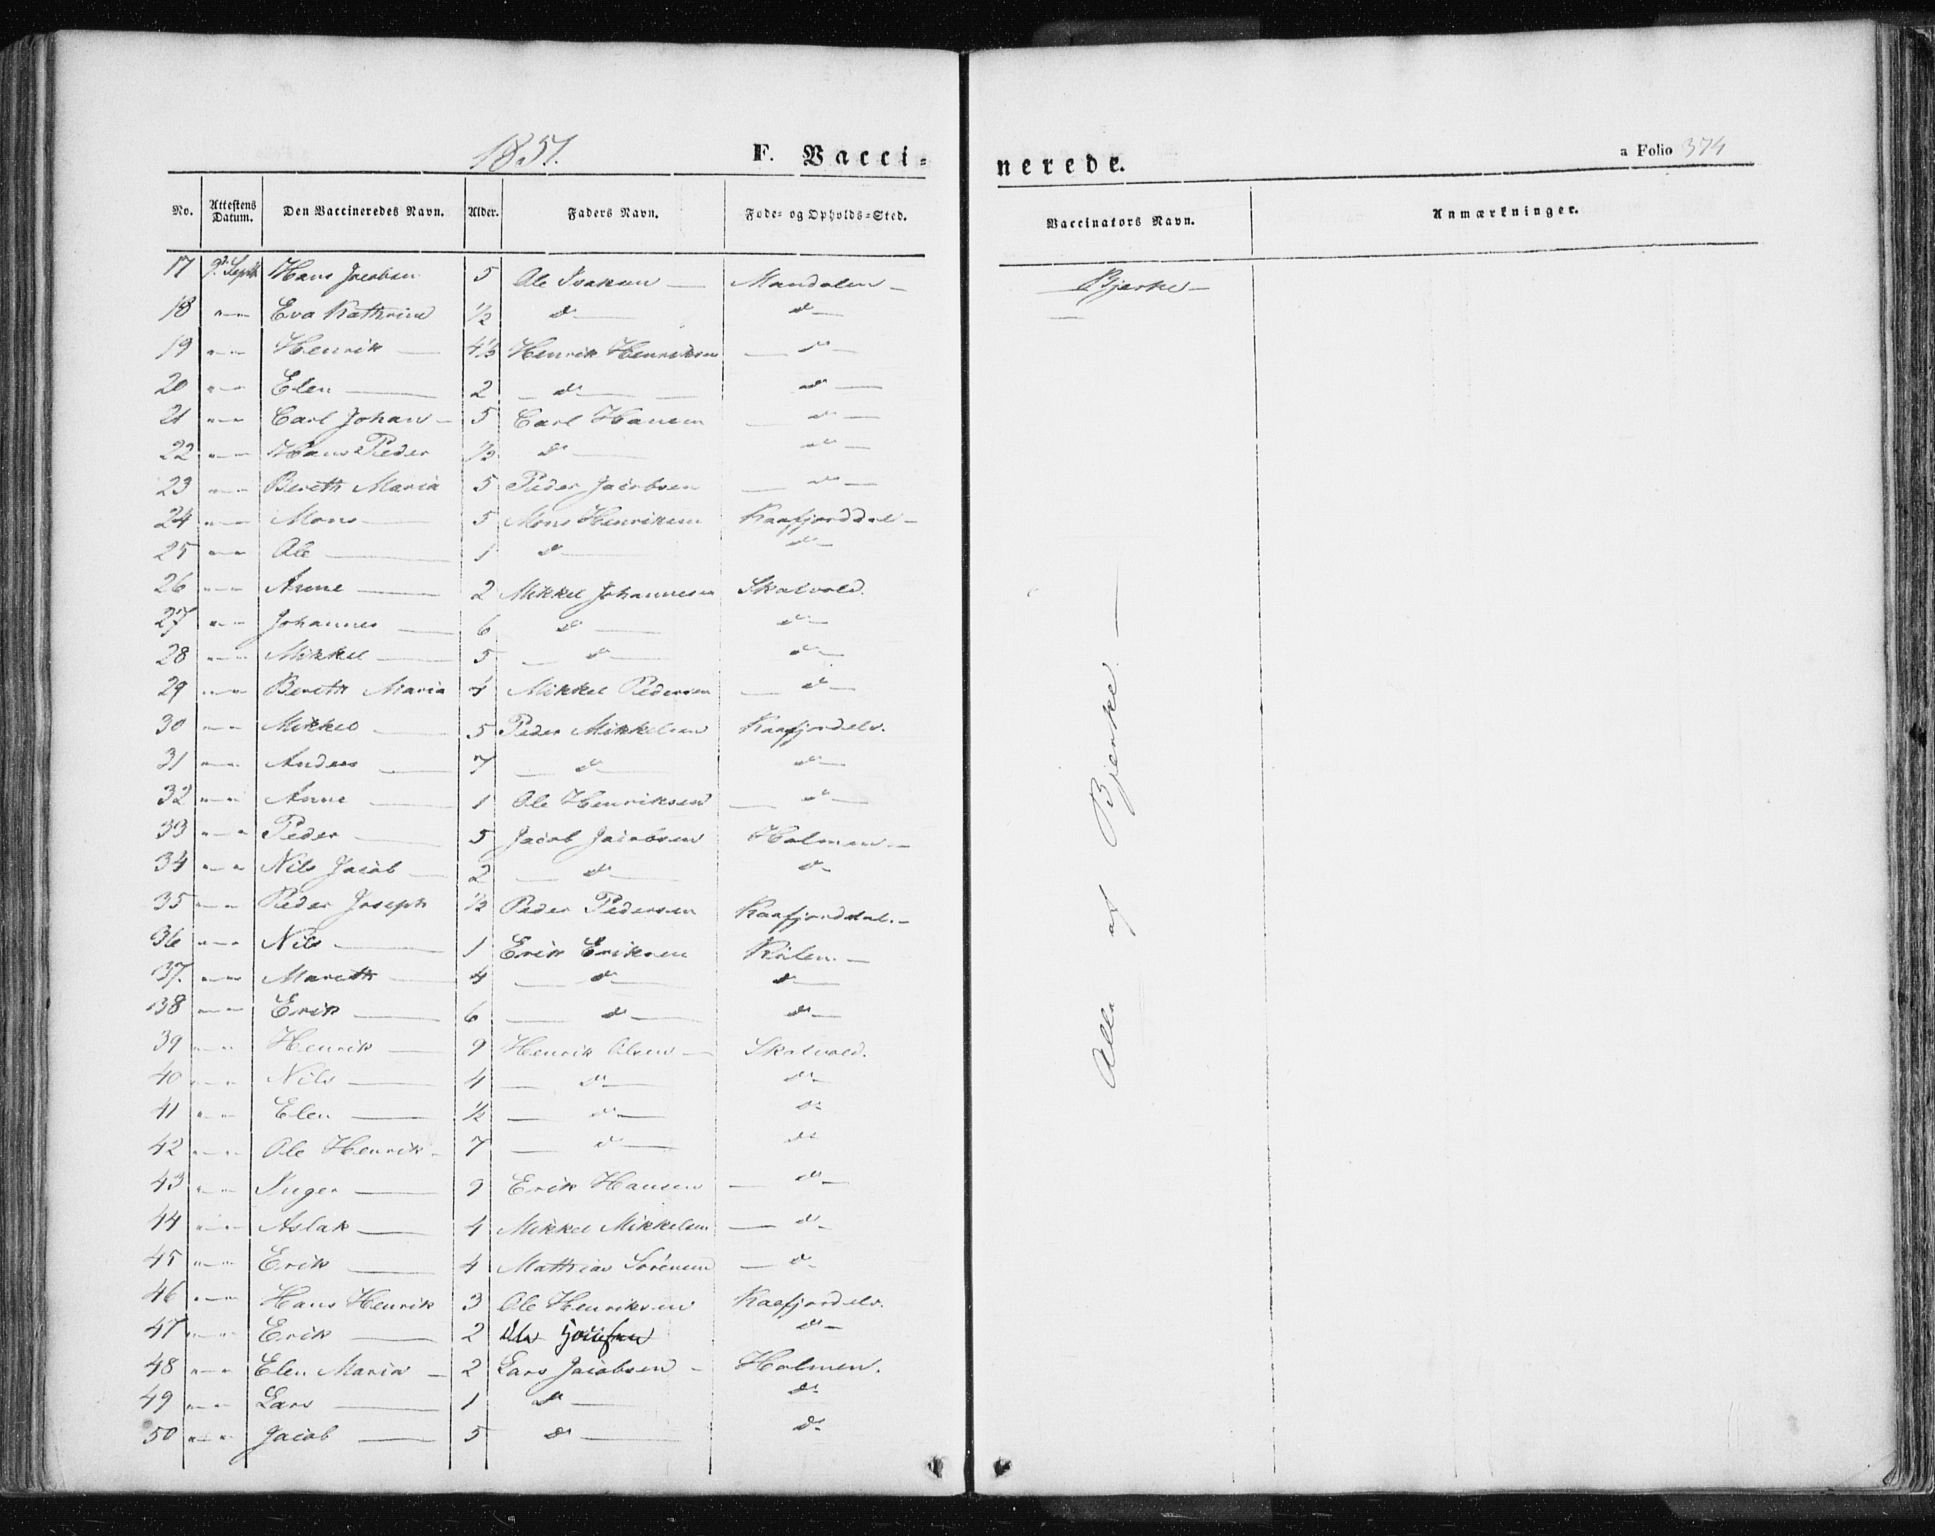 1857.
F. Vacci-
nerede.
a Folio 374
No. Attestens Datum. Den Vaccineredes Navn. Alder. Faders Navn. Føde- og Opholds-Sted. Vaccinators Navn. Anmærkninger.
17 9de Septbr Hans Jacobsen 5 Ole Isaksen — Mandalen — Bjerke —
18 " Eva Kathrine ½ do — do —
19 " Henrik — 4½ Henrik Henriksen — do —
20 " Elen — 2 — do — do —
21 " Carl Johan — 5 Carl Hansen — do —
22 " Hans Peder ½ do — do —
23 " Bereth Maria 5 Peder Jacobsen — do —
24 " Mons — 5 Mons Henriksen Kaafjorddal —
25 " Ole — 1 do — do —
26 " Anne — 2 Mikkel Johannesen Skalvold.
27 " Johannes — 6 do — do —
28 " Mikkel — 5 — do — do —
29 " Bereth Maria Mikkel Pedersen — do —
30 " Mikkel — 5 Peder Mikkelsen Kaafjordelv.
31 " Anders — 7 — do — do —
32 " Anne — 1 Ole Henriksen — do —
33 " Peder — 5 Jacob Jacobsen Holmen —
34 " Nils Jacob — 2 — do — do —
35 " Peder Joseph ½ Peder Pedersen Kaafjorddal. —
36 " Nils — 1 Erik Eriksen —
37. " Mareth — 4 — do — do —
38 " Erik — 6 — do — do —
39 " Henrik — 9 Henrik Olsen — Skalvold.
40 " Nils — 4 — do — do —
41 " Elen — ½ — do — do —
42 " Ole Henrik — 7 — do — do
43 " Inger — 9 Erik Hansen — do —
44 " Aslak — 4 Mikkel Mikkelsen — do —
45 " Erik — 4 Mathias Sørensen — do —
46 " Hans Henrik 3 Ole Henriksen Kaafjordelv.
47 " Erik — 2 do —
48 " Elen Maria — 2 Lars Jacobsen — Holmen.
49 " Lars — 1 do — do
50 " Jacob — 5 do — do —
Alle af Bjerke —